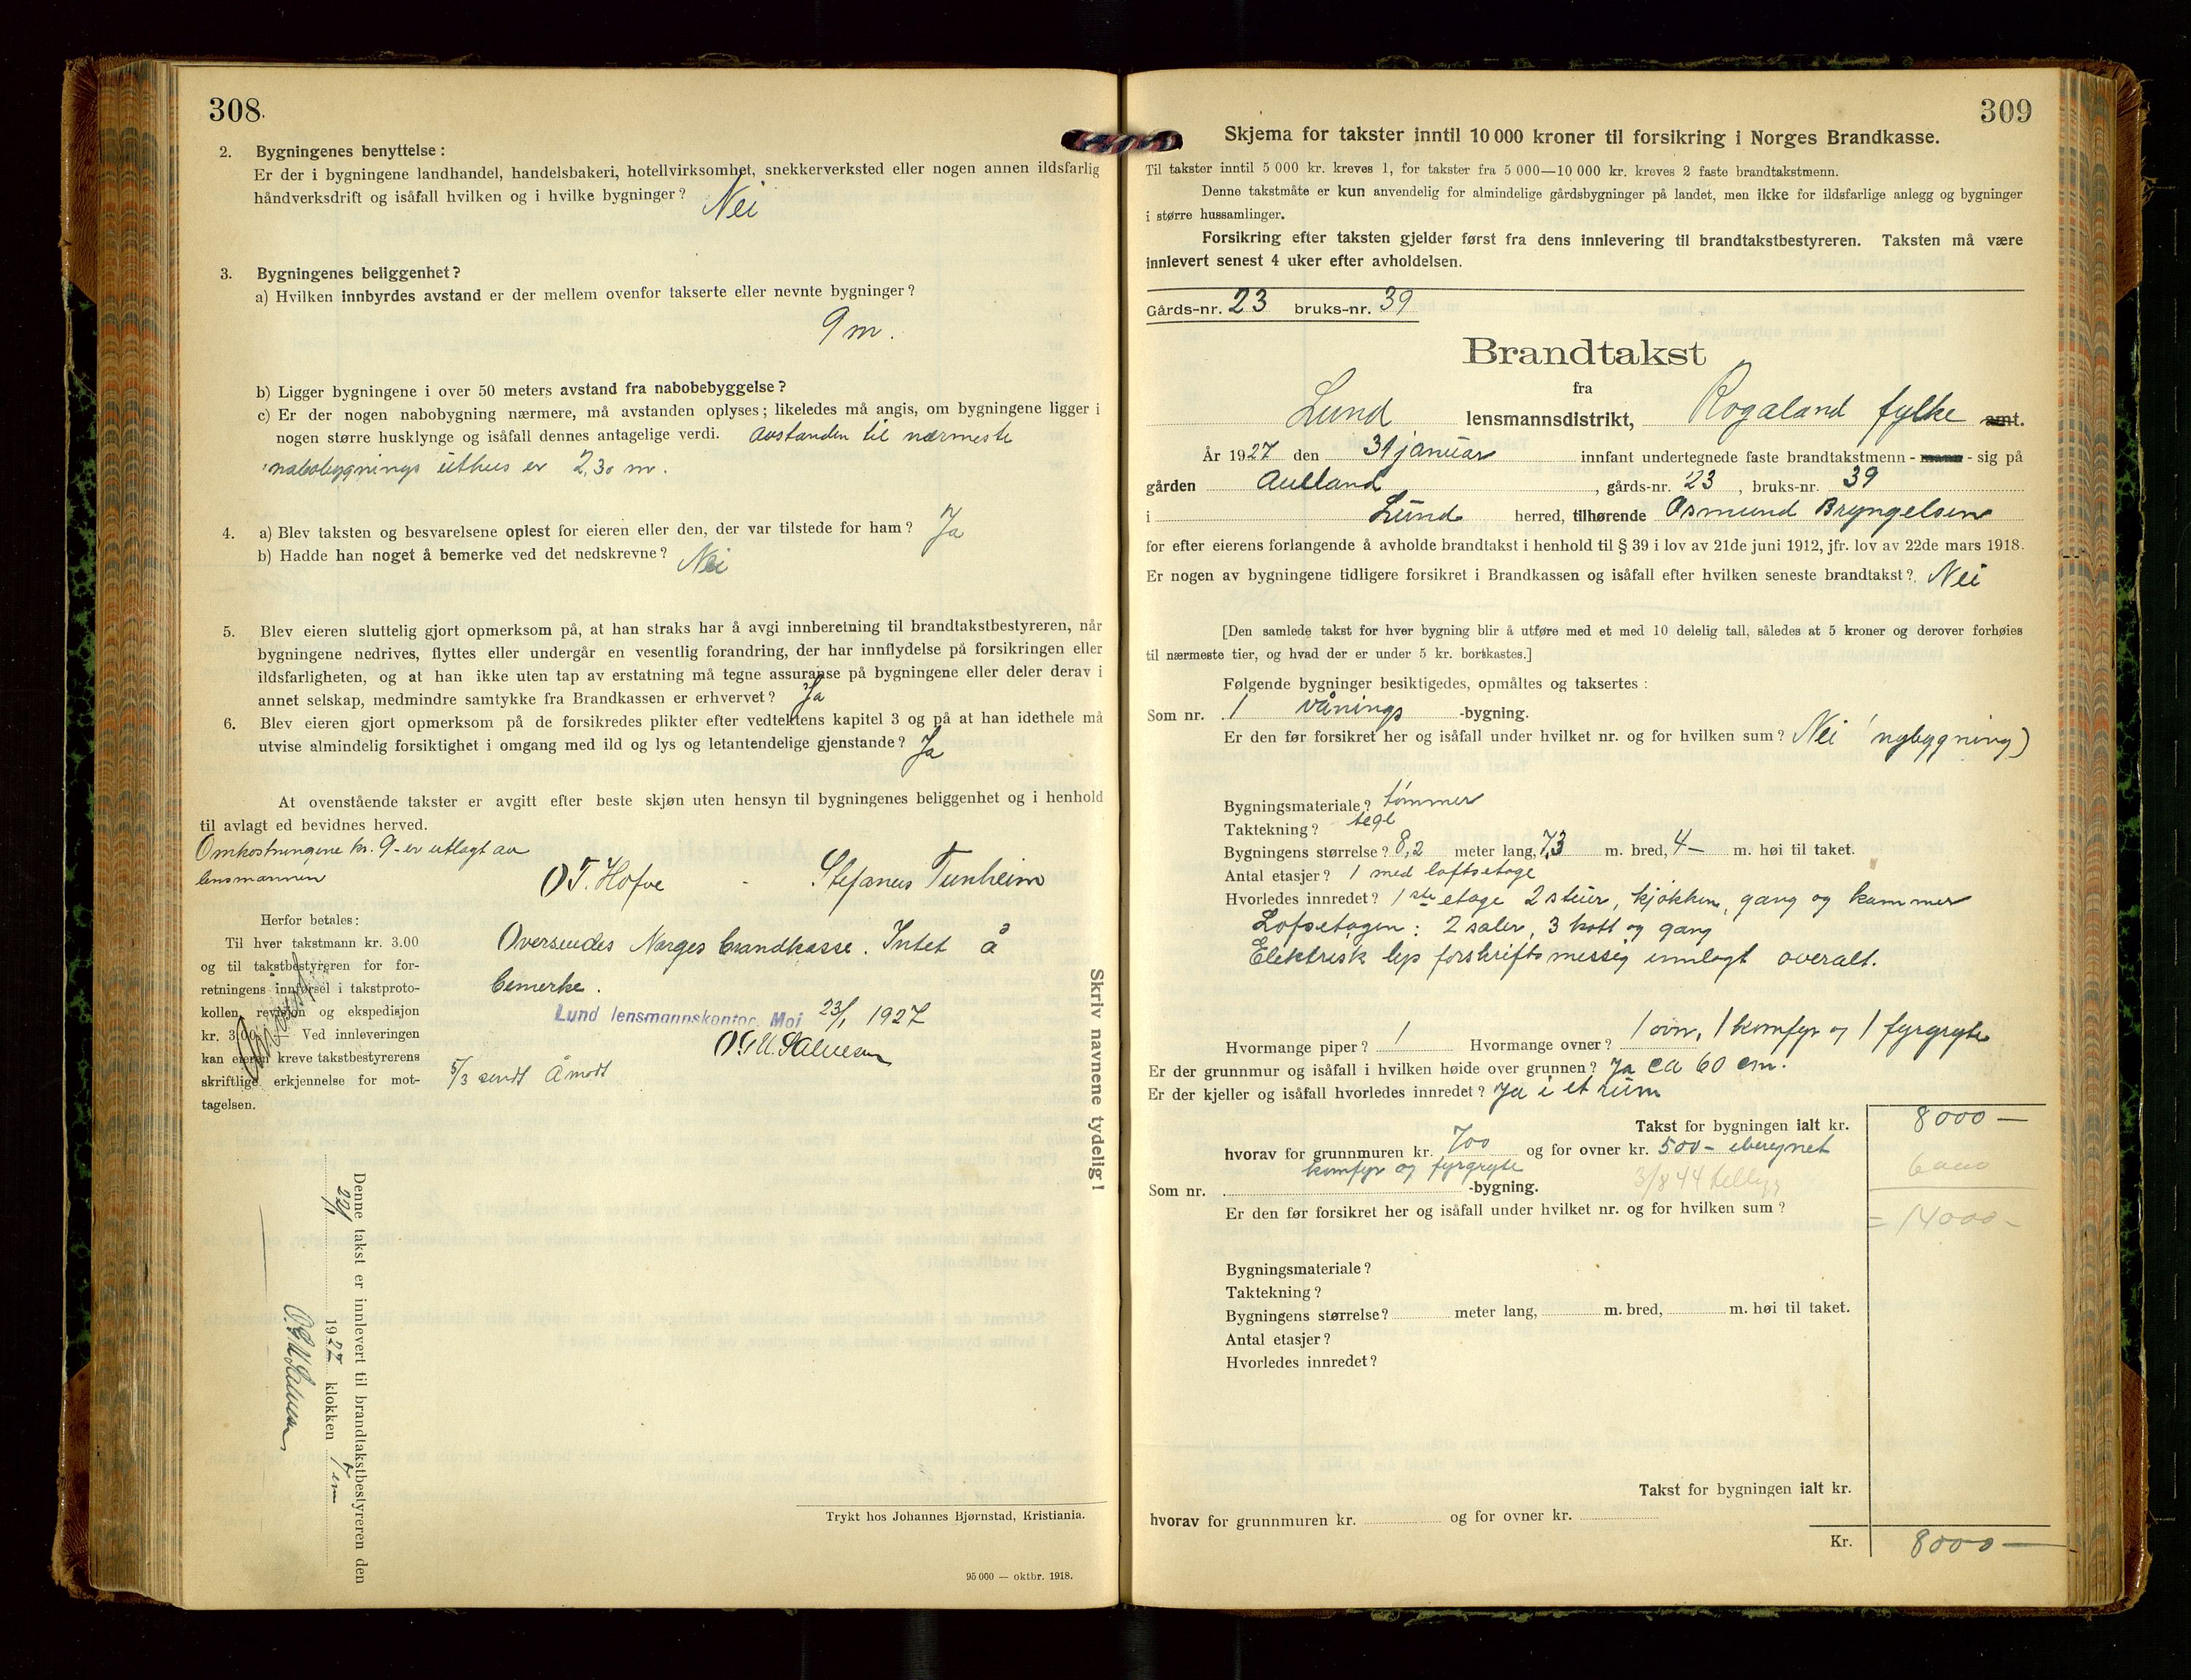 308.
2. Bygningenes benyttelse:
Er der i bygningene landhandel, handelsbakeri, hotellvirksomhet, snekkerverksted eller nogen annen ildsfarlig
håndverksdrift og isåfall hvilken og i hvilke bygninger? Nei
3. Bygningenes beliggenhet?
a) Hvilken innbyrdes avstand er der mellem ovenfor takserte eller nevnte bygninger?
9 m.
b) Ligger bygningene i over 50 meters avstand fra nabobebyggelse?
c) Er der nogen nabobygning nærmere, må avstanden oplyses; likeledes må angis, om bygningene ligger i
nogen større husklynge og isåfall dennes antagelige verdi. Avstanden til nærmeste
nabobygnings uthus er 2,30 m.
4. a) Blev taksten og besvarelsene oplest for eieren eller den, der var tilstede for ham? Ja
b) Hadde han noget å bemerke ved det nedskrevne? Nei
5. Blev eieren sluttelig gjort opmerksom på, at han straks har å avgi innberetning til brandtakstbestyreren, når
bygningene nedrives, flyttes eller undergår en vesentlig forandring, der har innflydelse på forsikringen eller
ildsfarligheten, og at han ikke uten tap av erstatning må tegne assuranse på bygningene eller deler derav i
annet selskap, medmindre samtykke fra Brandkassen er erhvervet? Ja
6. Blev eieren gjort opmerksom på de forsikredes plikter efter vedtektens kapitel 3 og på at han idethele må
utvise almindelig forsiktighet i omgang med ild og lys og letantendelige gjenstande? Ja
At ovenstående takster er avgitt efter beste skjøn uten hensyn til bygningenes beliggenhet og i henhold
til avlagt ed bevidnes herved.
Omkostningene kr. 9 - er utlagt av
lensmannen
O T. Hofve - Stefanus Tunheim
Herfor betales:
Til hver takstmann kr. 3.00
og til takstbestyreren for for-
retningens innførsel i takstproto-
kollen, revisjon og ekspedisjon
kr. 3.00. Ved innleveringen
kan eieren kreve takstbestyrerens
skriftlige erkjennelse for mot-
tagelsen.
Oversendes Norges brandkasse. Intet å
bemerke.
Lund lensmannskontor, Moi 23/1 1927
5/3 sendt Åmodt
Skriv navnene tydelig!
Denne takst er innlevert til brandtakstbestyreren den
22/1 1927 klokken 7 em
Trykt hos Johannes Bjørnstad, Kristiania.
95 000 — oktbr. 1918.
309
Skjema for takster inntil 10 000 kroner til forsikring i Norges Brandkasse.
Til takster inntil 5 000 kr. kreves 1, for takster fra 5 000—10 000 kr. kreves 2 faste brandtakstmenn.
Denne takstmåte er kun anvendelig for almindelige gårdsbygninger på landet, men ikke for ildsfarlige anlegg og bygninger
i større hussamlinger.
Forsikring efter taksten gjelder først fra dens innlevering til brandtakstbestyreren. Taksten må være
innlevert senest 4 uker efter avholdelsen.
Gårds-nr. 23 bruks-nr. 39
Brandtakst
fra
Lund lensmannsdistrikt, Rogaland fylke amt.
År 1927 den 31 januar innfant undertegnede faste brandtakstmenn - mann - sig på
gården Aulland, gårds-nr. 23, bruks-nr. 39
i Lund herred, tilhørende Osmund Bryngelsen
for efter eierens forlangende å avholde brandtakst i henhold til § 39 i lov av 21de juni 1912, jfr. lov av 22de mars 1918.
Er nogen av bygningene tidligere forsikret i Brandkassen og isåfall efter hvilken seneste brandtakst? Nei
[Den samlede takst for hver bygning blir å utføre med et med 10 delelig tall, således at 5 kroner og derover forhøies
til nærmeste tier, og hvad der er under 5 kr. bortkastes.]
Følgende bygninger besiktigedes, opmåltes og taksertes:
Som nr. 1 vånings -bygning.
Er den før forsikret her og isåfall under hvilket nr. og for hvilken sum? Nei (nybygning)
Bygningsmateriale? tømmer
Taktekning? tegl
Bygningens størrelse? 8,2 meter lang, 7,3 m. bred, 4 — m. høi til taket.
Antal etasjer? 1 med loftsetage
Hvorledes innredet? 1ste etage 2 stuer, kjøkken, gang og kammer
Lofsetagen: 2 saler, 3 kott og gang
Elektrisk lys forskriftsmessig innlagt overalt.
Hvormange piper? 1 Hvormange ovner? 1 ovn, 1 komfyr og 1 fyrgryte
Er der grunnmur og isåfall i hvilken høide over grunnen? Ja ca 60 cm.
Er der kjeller og isåfall hvorledes innredet? Ja i et rum
Takst for bygningen ialt kr. 8000 —
hvorav for grunnmuren kr. 700 og for ovner kr. 500 - iberegnet
komfyr og fyrgryte
3/8 44 6000
Som nr. -bygning.
Er den før forsikret her og isåfall under hvilket nr. og for hvilken sum?
= 14000 -
Bygningsmateriale?
Taktekning?
Bygningens størrelse? meter lang, m. bred, m. høi til taket.
Antal etasjer?
Hvorledes innredet?
Takst for bygningen ialt kr.
hvorav for grunnmuren kr. og for ovner kr.
Kr. 8000 —